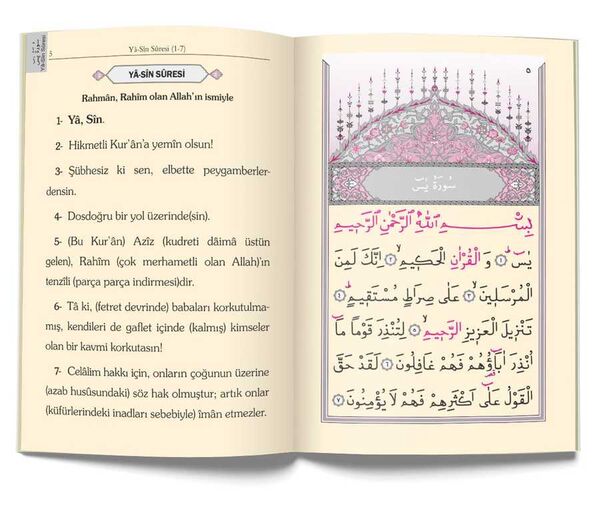 سورة يس
Yâ-Sîn Sûresi
5
Yâ-Sîn Sûresi (1-7)
YÂ-SÎN SÛRESİ
Rahmân, Rahîm olan Allah'ın ismiyle
1- Yâ, Sîn.
2- Hikmetli Kur'ân'a yemîn olsun!
3- Şübhesiz ki sen, elbette peygamberler-
densin.
4- Dosdoğru bir yol üzerinde(sin).
5- (Bu Kur'ân) Azîz (kudreti dâimâ üstün
gelen), Rahîm (çok merhametli olan Allah)'ın
tenzîli (parça parça indirmesi)dir.
6- Tâ ki, (fetret devrinde) babaları korkutulma-
mış, kendileri de gaflet içinde (kalmış) kimseler
olan bir kavmi korkutasın!
7- Celâlim hakkı için, onların çoğunun üzerine
(azab husûsundaki) söz hak olmuştur; artık onlar
(küfürlerindeki inadları sebebiyle) îmân etmezler.
٥
سُورَةُ يٰسۤ
بِسْمِ اللّٰهِ الرَّحْمٰنِ الرَّحِيمِ
يٰسۤ ﴿١﴾ وَالْقُرْاٰنِ الْحَكِيمِۙ ﴿٢﴾ اِنَّكَ لَمِنَ
الْمُرْسَلِينَۙ ﴿٣﴾ عَلٰى صِرَاطٍ مُسْتَقِيمٍۜ ﴿٤﴾
تَنْزِيلَ الْعَزِيزِ الرَّحِيمِۙ ﴿٥﴾ لِتُنْذِرَ قَوْمًا مَٓا
اُنْذِرَ اٰبَٓاؤُهُمْ فَهُمْ غَافِلُونَ ﴿٦﴾ لَقَدْ حَقَّ
الْقَوْلُ عَلٰٓى اَكْثَرِهِمْ فَهُمْ لَا يُؤْمِنُونَ ﴿٧﴾